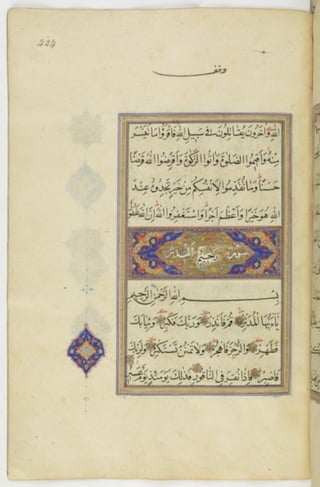 424
وقف
الله وَآخَرُونَ يُقَاتِلُونَ فِي سَبِيلِ اللهِ فَاقْرَؤُا مَا تَيَسَّرَ
مِنْهُ وَاَقِيمُوا الصَّلٰوةَ وَاٰتُوا الزَّكٰوةَ وَاَقْرِضُوا اللهَ قَرْضًا
حَسَنًا وَمَا تُقَدِّمُوا لِاَنْفُسِكُمْ مِنْ خَيْرٍ تَجِدُوهُ عِنْدَ
اللهِ هُوَ خَيْرًا وَاَعْظَمَ اَجْرًا وَاسْتَغْفِرُوا اللهَ اِنَّ اللهَ غَفُورٌ
رحيم
سورة المدثر
بِسْمِ اللهِ الرَّحْمٰنِ الرَّحِيمِ
يَا اَيُّهَا الْمُدَّثِّرُ قُمْ فَاَنْذِرْ وَرَبَّكَ فَكَبِّرْ وَثِيَابَكَ
فَطَهِّرْ وَالرُّجْزَ فَاهْجُرْ وَلَا تَمْنُنْ تَسْتَكْثِرُ وَلِرَبِّكَ
فَاصْبِرْ فَاِذَا نُقِرَ فِي النَّاقُورِ فَذٰلِكَ يَوْمَئِذٍ يَوْمٌ عَسِيرٌ